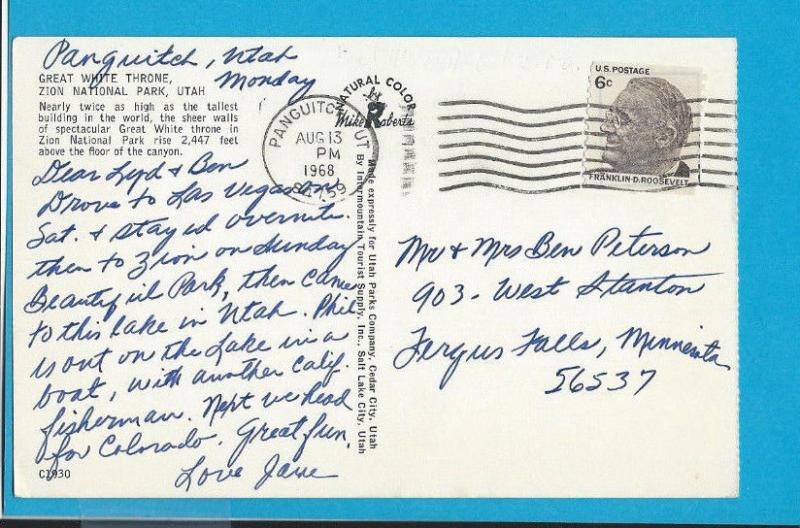 Panguitch, Utah
Monday
GREAT WHITE THRONE,
ZION NATIONAL PARK, UTAH
Nearly twice as high as the tallest
building in the world, the sheer walls
of spectacular Great White throne in
Zion National Park rise 2,447 feet
above the floor of the canyon.
Dear Lyd & Ben
Drove to Las Vegas on
Sat. & stayed overnite.
then to Zion on Sunday
Beautiful Park, then came
to this lake in Utah. Phil
is out on the Lake in a
boat, with another Calif.
fisherman. Next we head
for Colorado. Great fun.
Love Jane
C1930
NATURAL COLOR
by
Mike Roberts
Made expressly for Utah Parks Company, Cedar City, Utah
By Intermountain Tourist Supply, Inc., Salt Lake City, Utah
PANGUITCH, UT
AUG 13
PM
1968
84759
U.S. POSTAGE
6c
FRANKLIN D. ROOSEVELT
Mr & Mrs Ben Peterson
903- West Stanton
Fergus Falls, Minnesota
56537